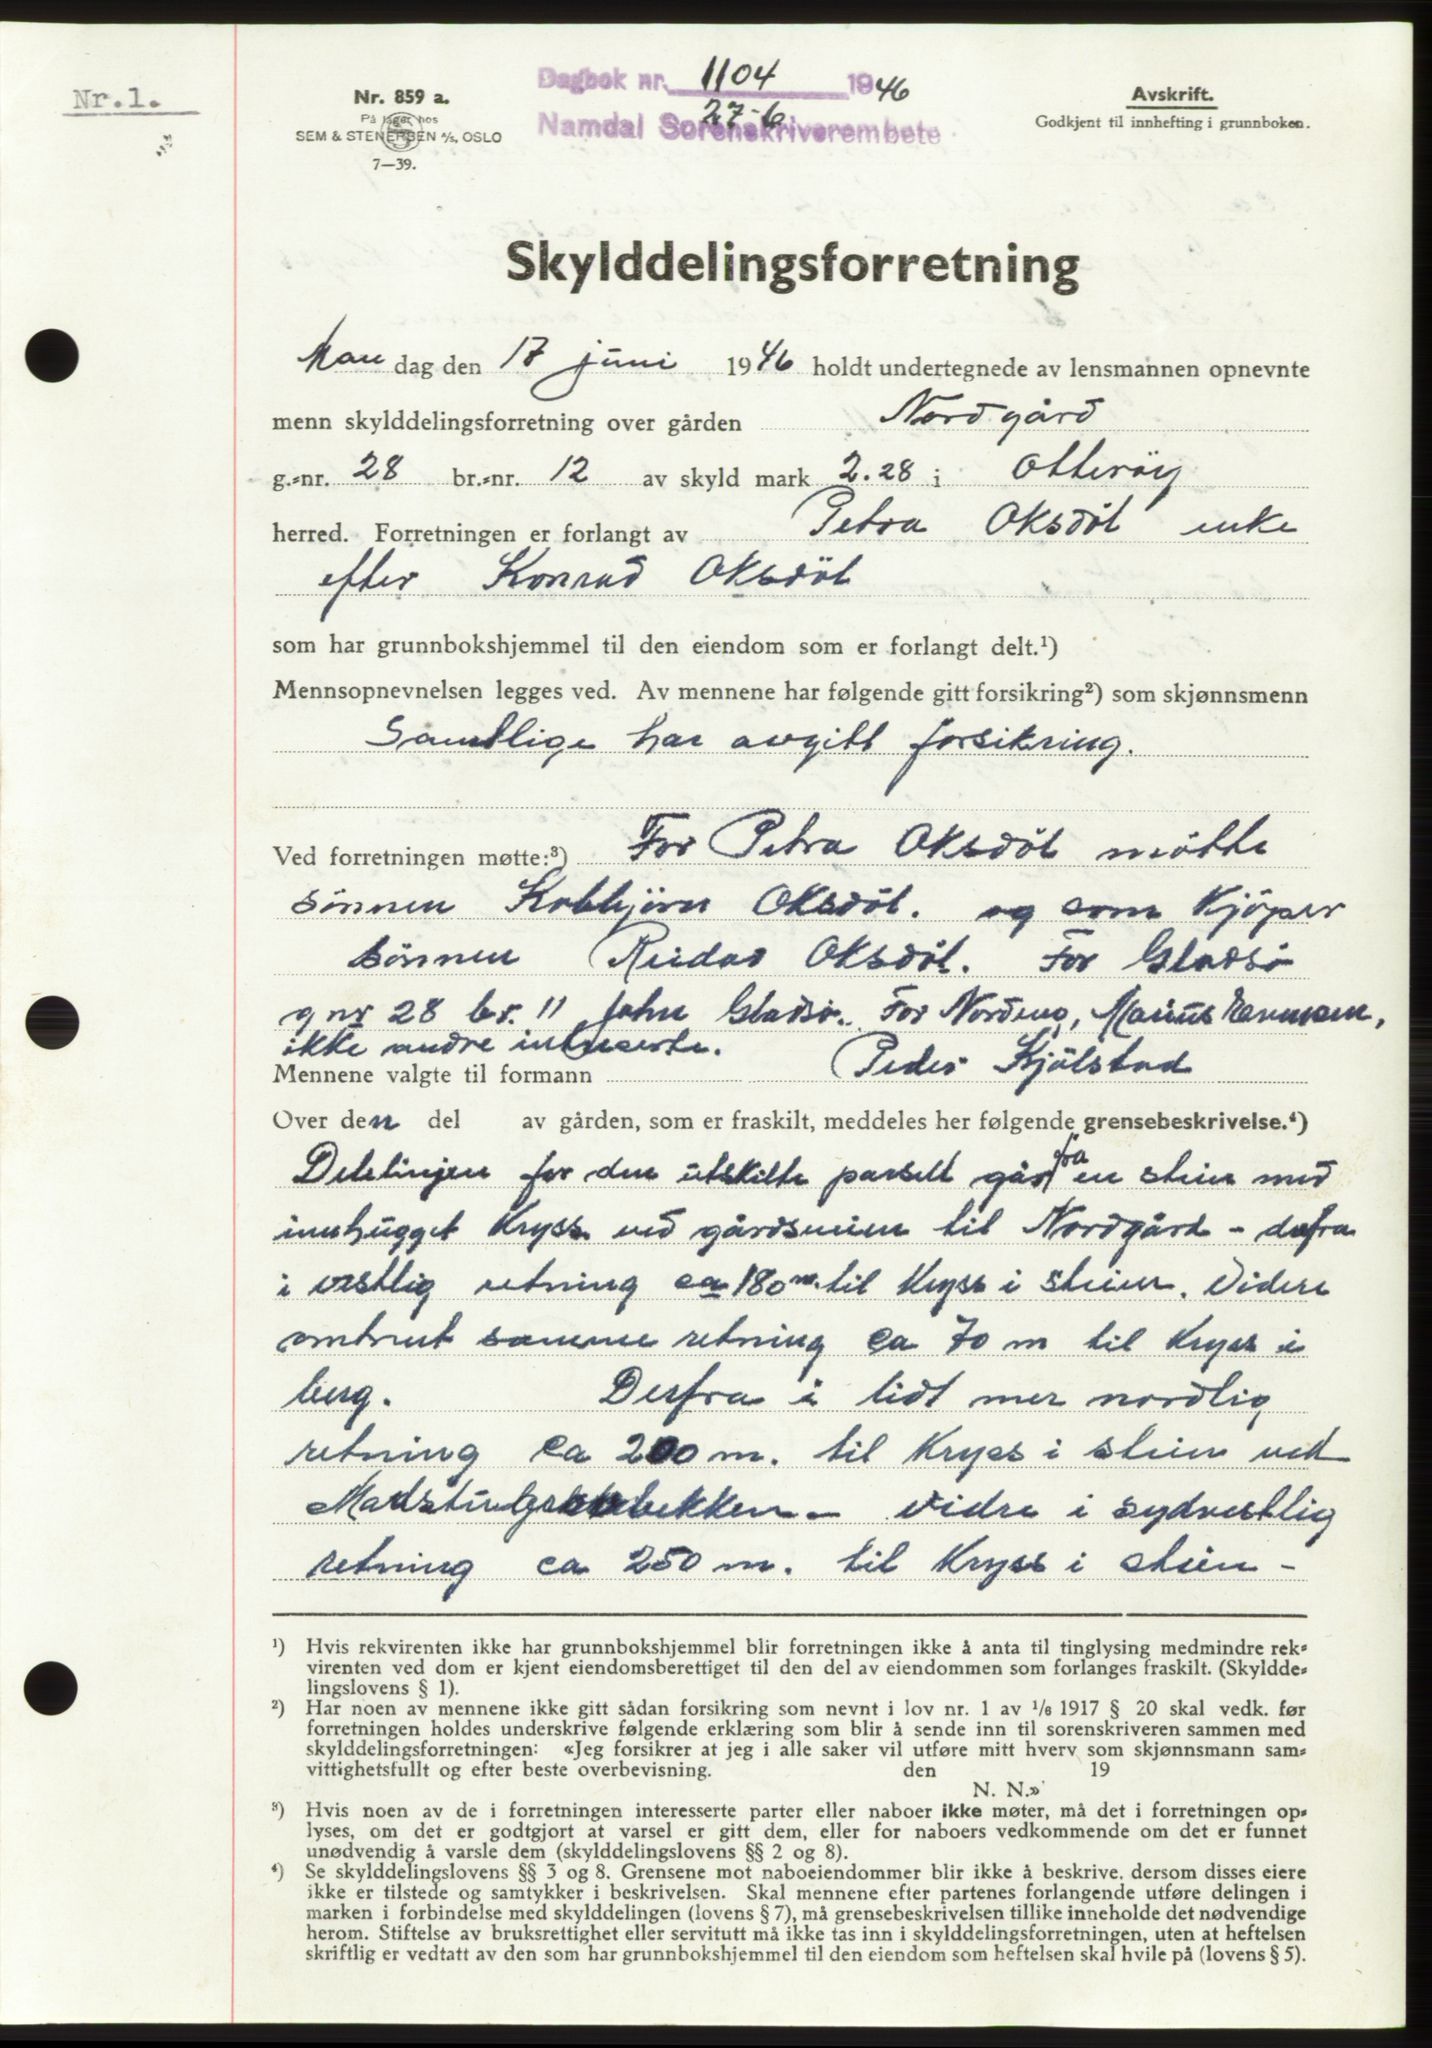 Nr.1.
Nr. 859 a.
På lager hos
SEM & STENERSEN A/S, OSLO
7—39.
Dagbok nr. 1104 1946
27-6
Namdal Sorenskriverembete
Avskrift.
Godkjent til innhefting i grunnboken.
Skylddelingsforretning
Man dag den 17 juni 1946 holdt undertegnede av lensmannen opnevnte
menn skylddelingsforretning over gården Nordgård
g.-nr. 28 br.-nr. 12 av skyld mark 2.28 i Otteröy
herred. Forretningen er forlangt av Petra Oksdöl enke
efter Konrad Oksdöl
som har grunnbokshjemmel til den eiendom som er forlangt delt.¹)
Mennsopnevnelsen legges ved. Av mennene har følgende gitt forsikring²) som skjønnsmenn
Samtlige har avgitt forsikring.
Ved forretningen møtte:³) For Petra Oksdöl mötte
sönnen Oksdöl. og som Kjöper
sönnen Reidar Oksdöl. For Gladsö
g nr 28 br. 11 John Gladsö. For Nordeng, Marius
ikke andre interserte.
Mennene valgte til formann Peder Kjölstad
Over den del av gården, som er fraskilt, meddeles her følgende grensebeskrivelse.⁴)
Delelinjen for den utskilte parsell går fra en stein med
innhugget Kryss ved gårdsveien til Nordgård - derfra
i vestlig retning ca 180 m. til Kryss i steien. Videre
omtrent samme retning ca 70 m til Kryss i
berg. Derfra i lidt mer nordlig
retning ca 200 m. til Kryss i stein ved
vidre i sydvestlig
retning ca 250 m. til Kryss i stein -
¹) Hvis rekvirenten ikke har grunnbokshjemmel blir forretningen ikke å anta til tinglysing medmindre rek-
virenten ved dom er kjent eiendomsberettiget til den del av eiendommen som forlanges fraskilt. (Skyldde-
lingslovens § 1).
²) Har noen av mennene ikke gitt sådan forsikring som nevnt i lov nr. 1 av 1/6 1917 § 20 skal vedk. før
forretningen holdes underskrive følgende erklæring som blir å sende inn til sorenskriveren sammen med
skylddelingsforretningen: «Jeg forsikrer at jeg i alle saker vil utføre mitt hverv som skjønnsmann sam-
vittighetsfullt og efter beste overbevisning. den 19
N. N.»
³) Hvis noen av de i forretningen interesserte parter eller naboer ikke møter, må det i forretningen op-
lyses, om det er godtgjort at varsel er gitt dem, eller for naboers vedkommende om det er funnet
unødvendig å varsle dem (skylddelingslovens §§ 2 og 8).
⁴) Se skylddelingslovens §§ 3 og 8. Grensene mot naboeiendommer blir ikke å beskrive, dersom disses eiere
ikke er tilstede og samtykker i beskrivelsen. Skal mennene efter partenes forlangende utføre delingen i
marken i forbindelse med skylddelingen (lovens § 7), må grensebeskrivelsen tillike inneholde det nødvendige
herom. Stiftelse av bruksrettighet eller servitutt må ikke tas inn i skylddelingsforretningen, uten at heftelsen
skriftlig er vedtatt av den som har grunnbokshjemmel til den eiendom som heftelsen skal hvile på (lovens § 5).